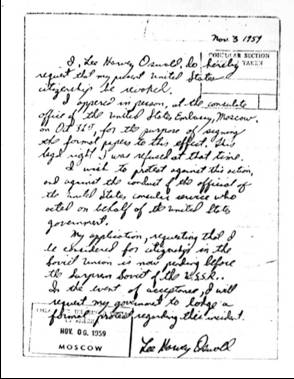 Nov 3 1959
CONSULAR SECTION
TAKEN
I, Lee Harvey Oswald, do hereby
request that my present United States
citizenship be revoked.
I appered in person, at the consulate
office of the United States Embassy, Moscow,
on Oct 31st, for the purpose of signing
the formal papers to this effect. This
legal right I was refused at that time.
I wish to protest against this action,
and against the conduct of the official of
the United States consular service who
acted on behalf of the United States
government.
My application, requesting that I
be considered for citizenship in the
Soviet Union is now pending before
the Surprem Soviet of the U.S.S.R..
In the event of acceptance, I will
request my government to lodge a
formal protest regarding this incident.
NOV. 06 1959
MOSCOW
Lee Harvey Oswald